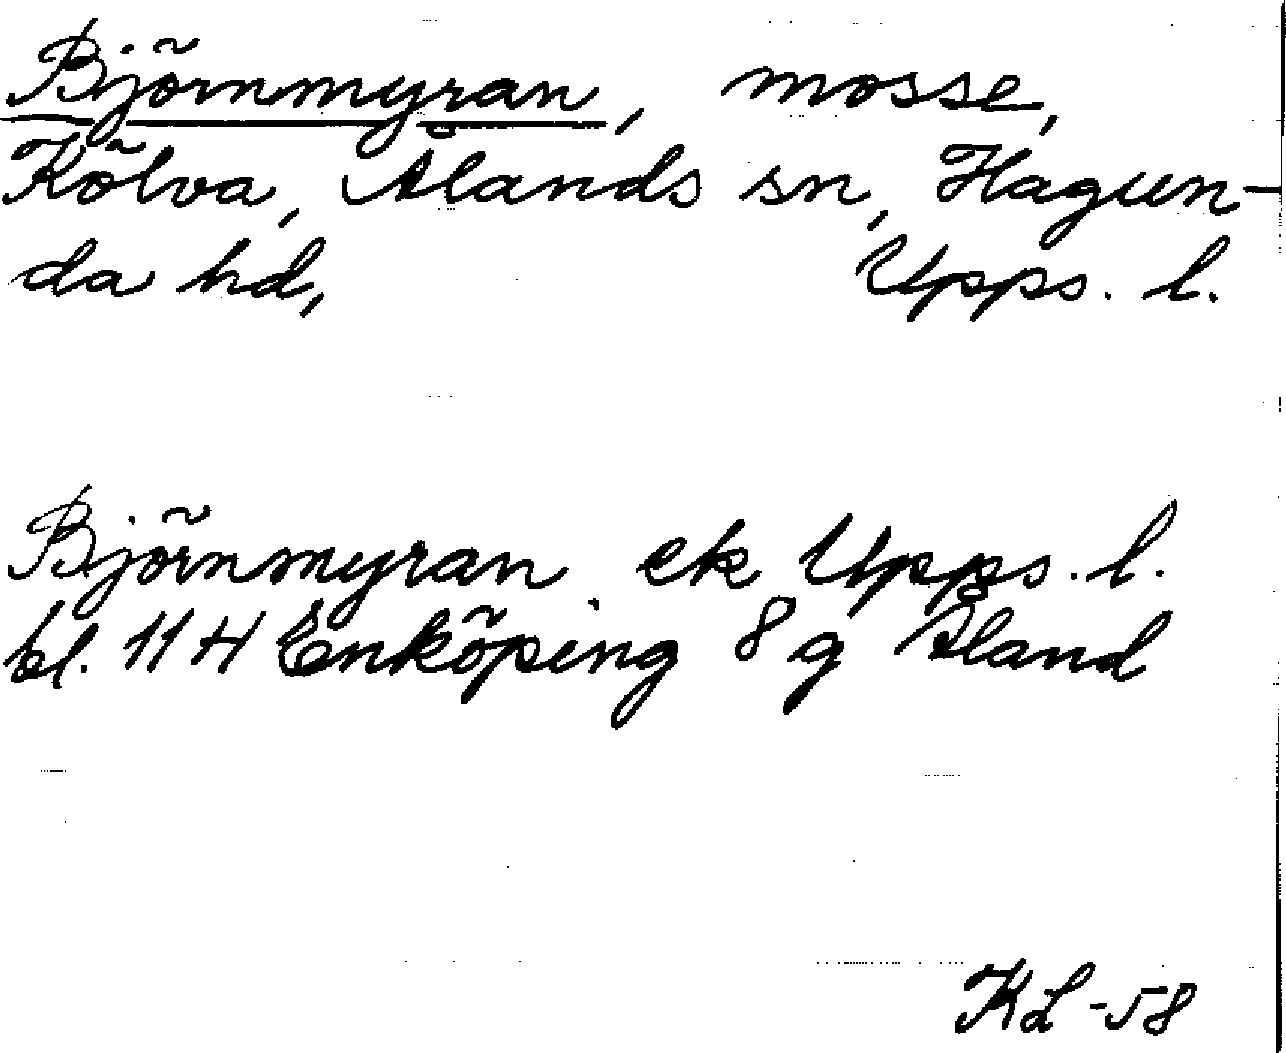 Björnmyran, mosse,
Kölva, Ålands sn, Hagun-
da hd, Upps. l.
Björnmyran. ek Upps. l.
bl. 11 H Enköping 8 g Åland
KL -58